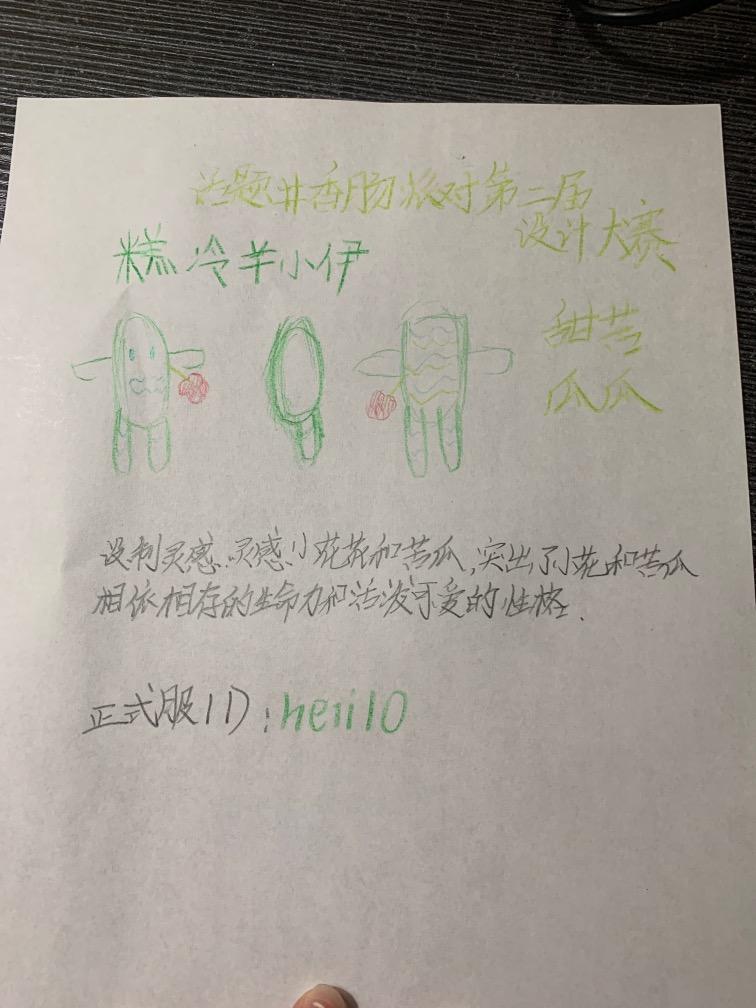 话题#香肠派对第二届
设计大赛
糕冷羊小伊
甜苦
瓜瓜
设制灵感、灵感小花花和苦瓜,突出了小花和苦瓜
相依相存的生命力和活泼可爱的性格.
正式服ID:heiil0